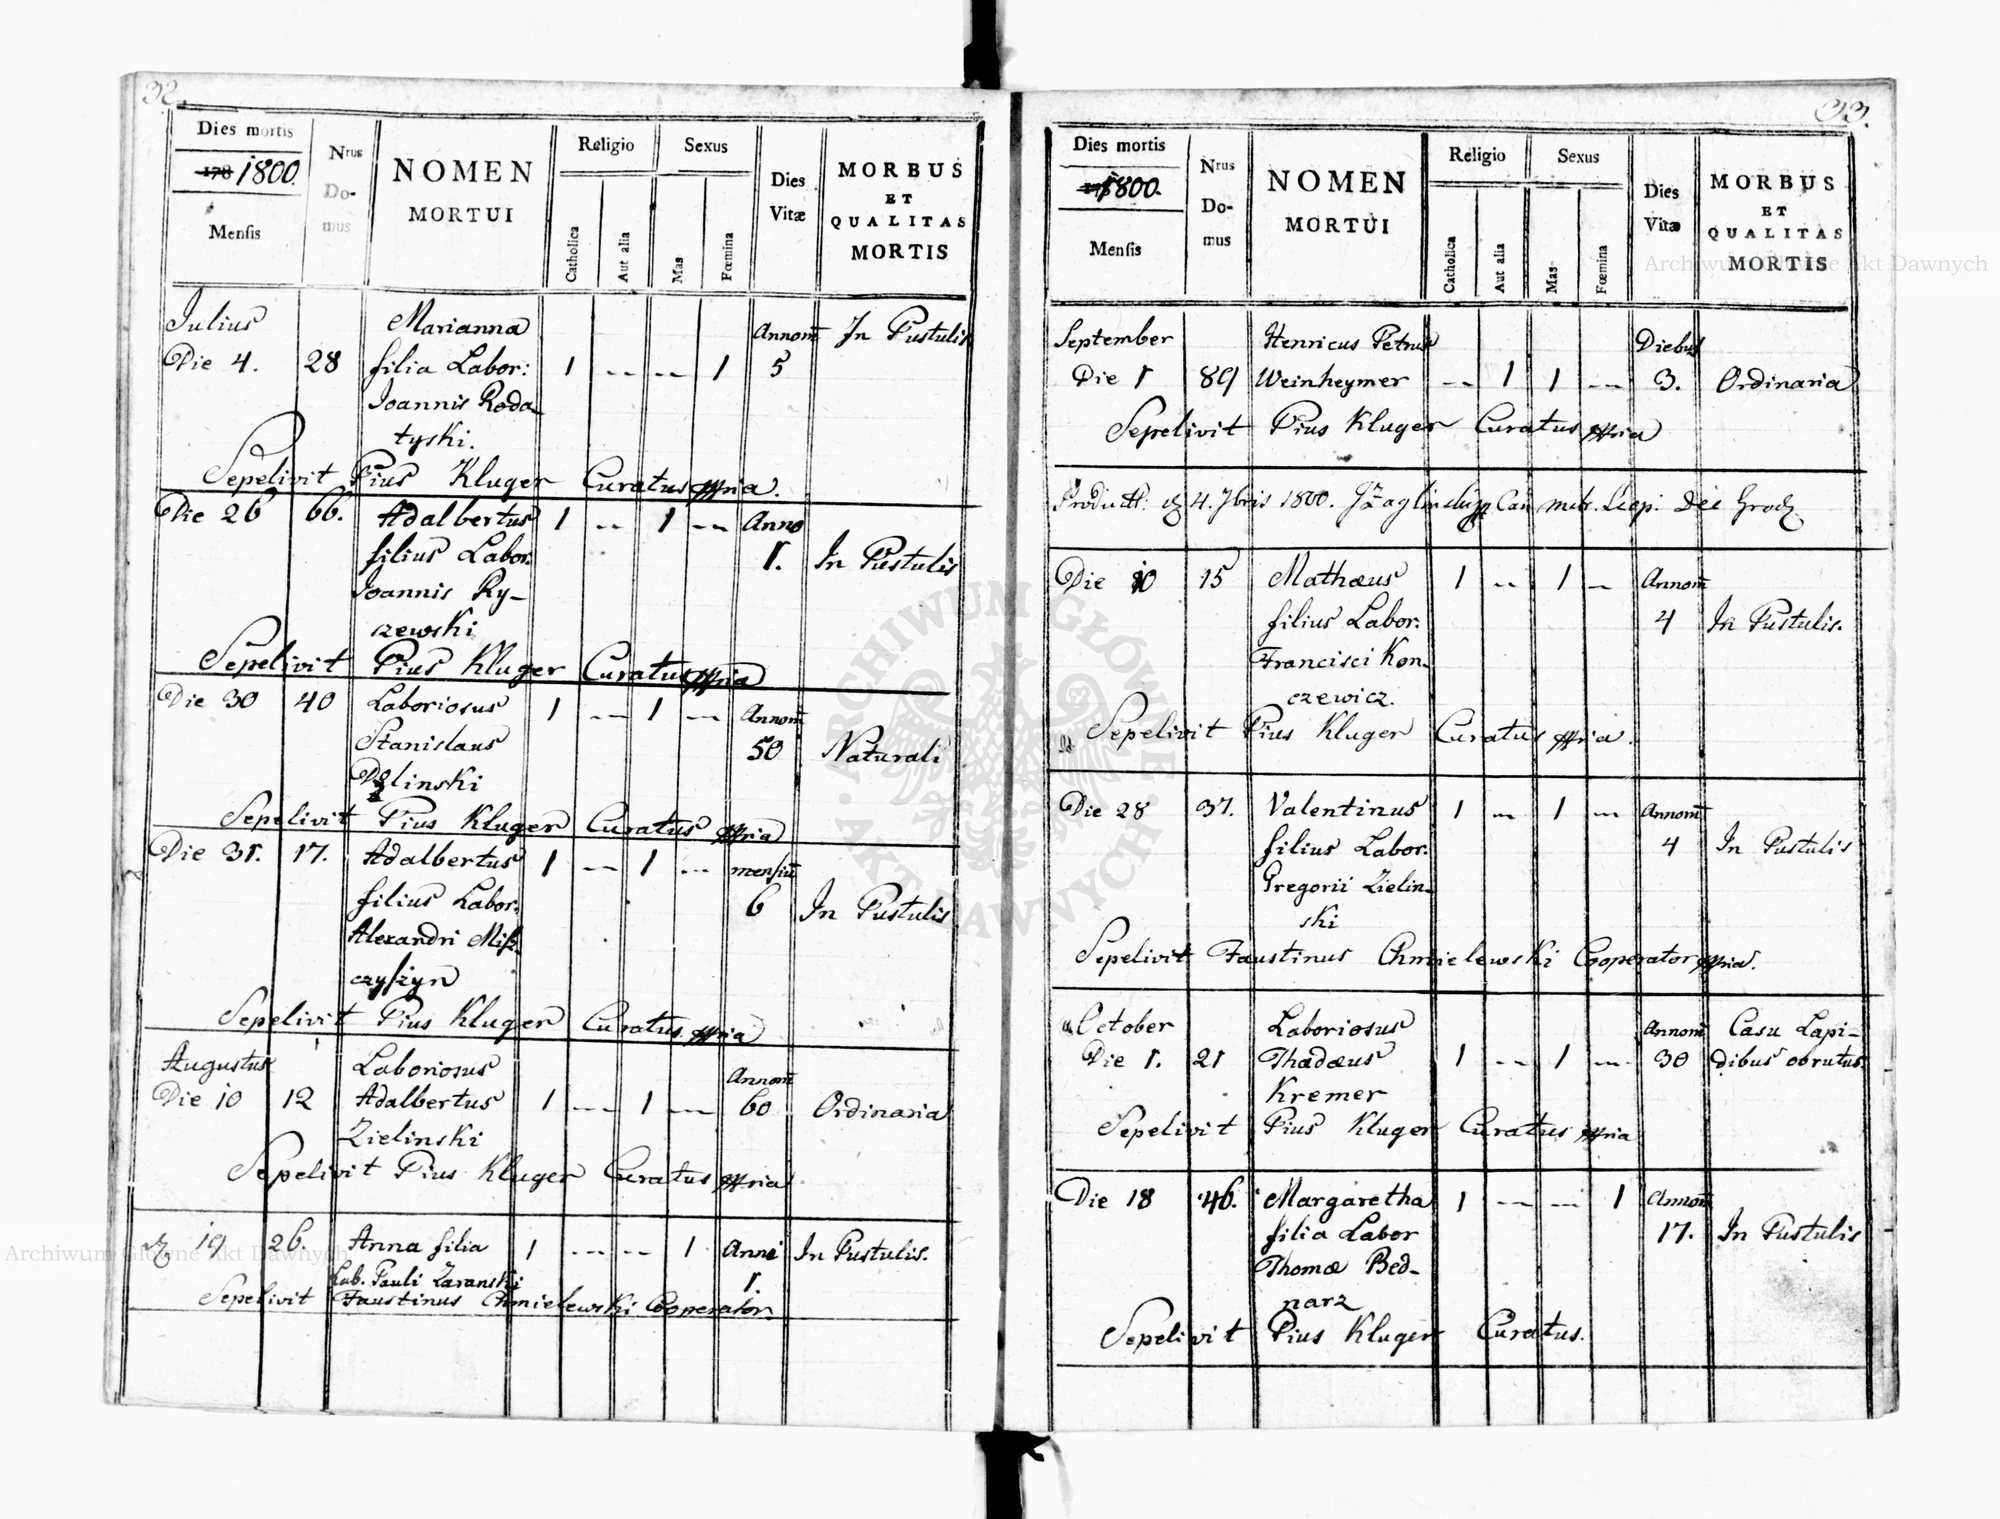 32.
Dies mortis
178 1800.
Mensis
Nrus
Do-
mus
NOMEN
MORTUI
Religio
Catholica
Aut alia
Sexus
Mas
Fœmina
Dies
Vitæ
MORBUS
ET
QUALITAS
MORTIS
Julius
Marianna
Annorũ
In Pustulis
Die 4. 28 filia Labor: 1 -- -- 1 5
Joannis Roda-
tyski.
Sepelivit Pius Kluger Curatus mpria.
Die 26 66. Adalbertus 1 -- 1 -- Anno
filius Labor. 1. In Pustulis
Joannis Ry-
czewski
Sepelivit Pius Kluger Curatus mpria
Die 30 40 Laboriosus 1 -- 1 -- Annorũ
Stanislaus 50 Naturali
linski
Sepelivit Pius Kluger Curatus mpria
Die 31. 17. Adalbertus 1 -- 1 -- mensiũ
filius Labor. 6 In Pustulis
Alexandri Mis-
czyszyn
Sepelivit Pius Kluger Curatus mpria
Augustus Laboriosus Annorũ
Die 10 12 Adalbertus 1 -- 1 -- 60 Ordinaria
Zielinski
Sepelivit Pius Kluger Curatus mpria
19 26. Anna filia 1 -- -- 1 Anni In Pustulis.
Lab. Pauli Zaranski 1.
Sepelivit Faustinus Chmielewski Cooperator.
33.
Dies mortis
1800.
Mensis
Nrus
Do-
mus
NOMEN
MORTUI
Religio
Catholica
Aut alia
Sexus
Mas
Fœmina
Dies
Vitæ
MORBUS
ET
QUALITAS
MORTIS
September Henricus Petrus Diebus
Die 1 89 Weinheymer -- 1 1 -- 3. Ordinaria
Sepelivit Pius Kluger Curatus mpria
4. 7bris 1800. Can Dec Grod
Die 10 15 Mathæus 1 -- 1 -- Annorũ
filius Labor. 4 In Pustulis.
Francisci Kon-
czewicz.
Sepelivit Pius Kluger Curatus mpria.
Die 28 37. Valentinus 1 -- 1 -- Annorũ
filius Labor. 4 In Pustulis
Gregorii Zielin-
ski
Sepelivit Faustinus Chmielewski Cooperator mpria.
October Laboriosus Annorũ Casu Lapi-
Die 1. 21 Thadæus 1 -- 1 -- 30 dibus obrutus.
Kremer
Sepelivit Pius Kluger Curatus mpria
Die 18 46. Margaretha 1 -- -- 1 Annorũ
filia Labor 17. In Pustulis
Thomæ Bed-
narz
Sepelivit Pius Kluger Curatus.
Archiwum Główne Akt Dawnych
Archiwum Główne Akt Dawnych
ARCHIWUM GŁÓWNE
AKT DAWNYCH